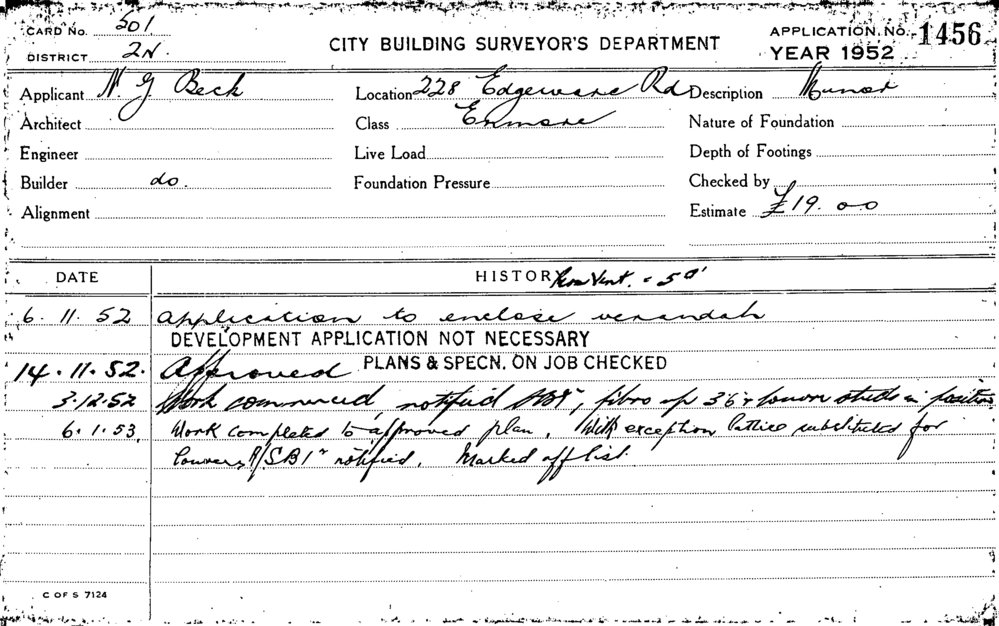 CARD NO. 301
DISTRICT 2N.
CITY BUILDING SURVEYOR'S DEPARTMENT
APPLICATION. NO. 1456
YEAR 1952
Applicant N G Beck
Location 228 Edgeware Rd
Description Minor
Architect
Class Enmore
Nature of Foundation
Engineer
Live Load
Depth of Footings
Builder do.
Foundation Pressure
Checked by
Alignment
Estimate £19. 00
DATE
HISTORY
6. 11. 52 application to enclose verandah
DEVELOPMENT APPLICATION NOT NECESSARY
14. 11. 52. Approved PLANS & SPECN. ON JOB CHECKED
3.12.52 Work commenced, notified fibro up 3'6" studs in position
6. 1. 53. Work completed to approved plan. With exception lattice substituted for
louvers, notified. Marked off list.
C OF S 7124